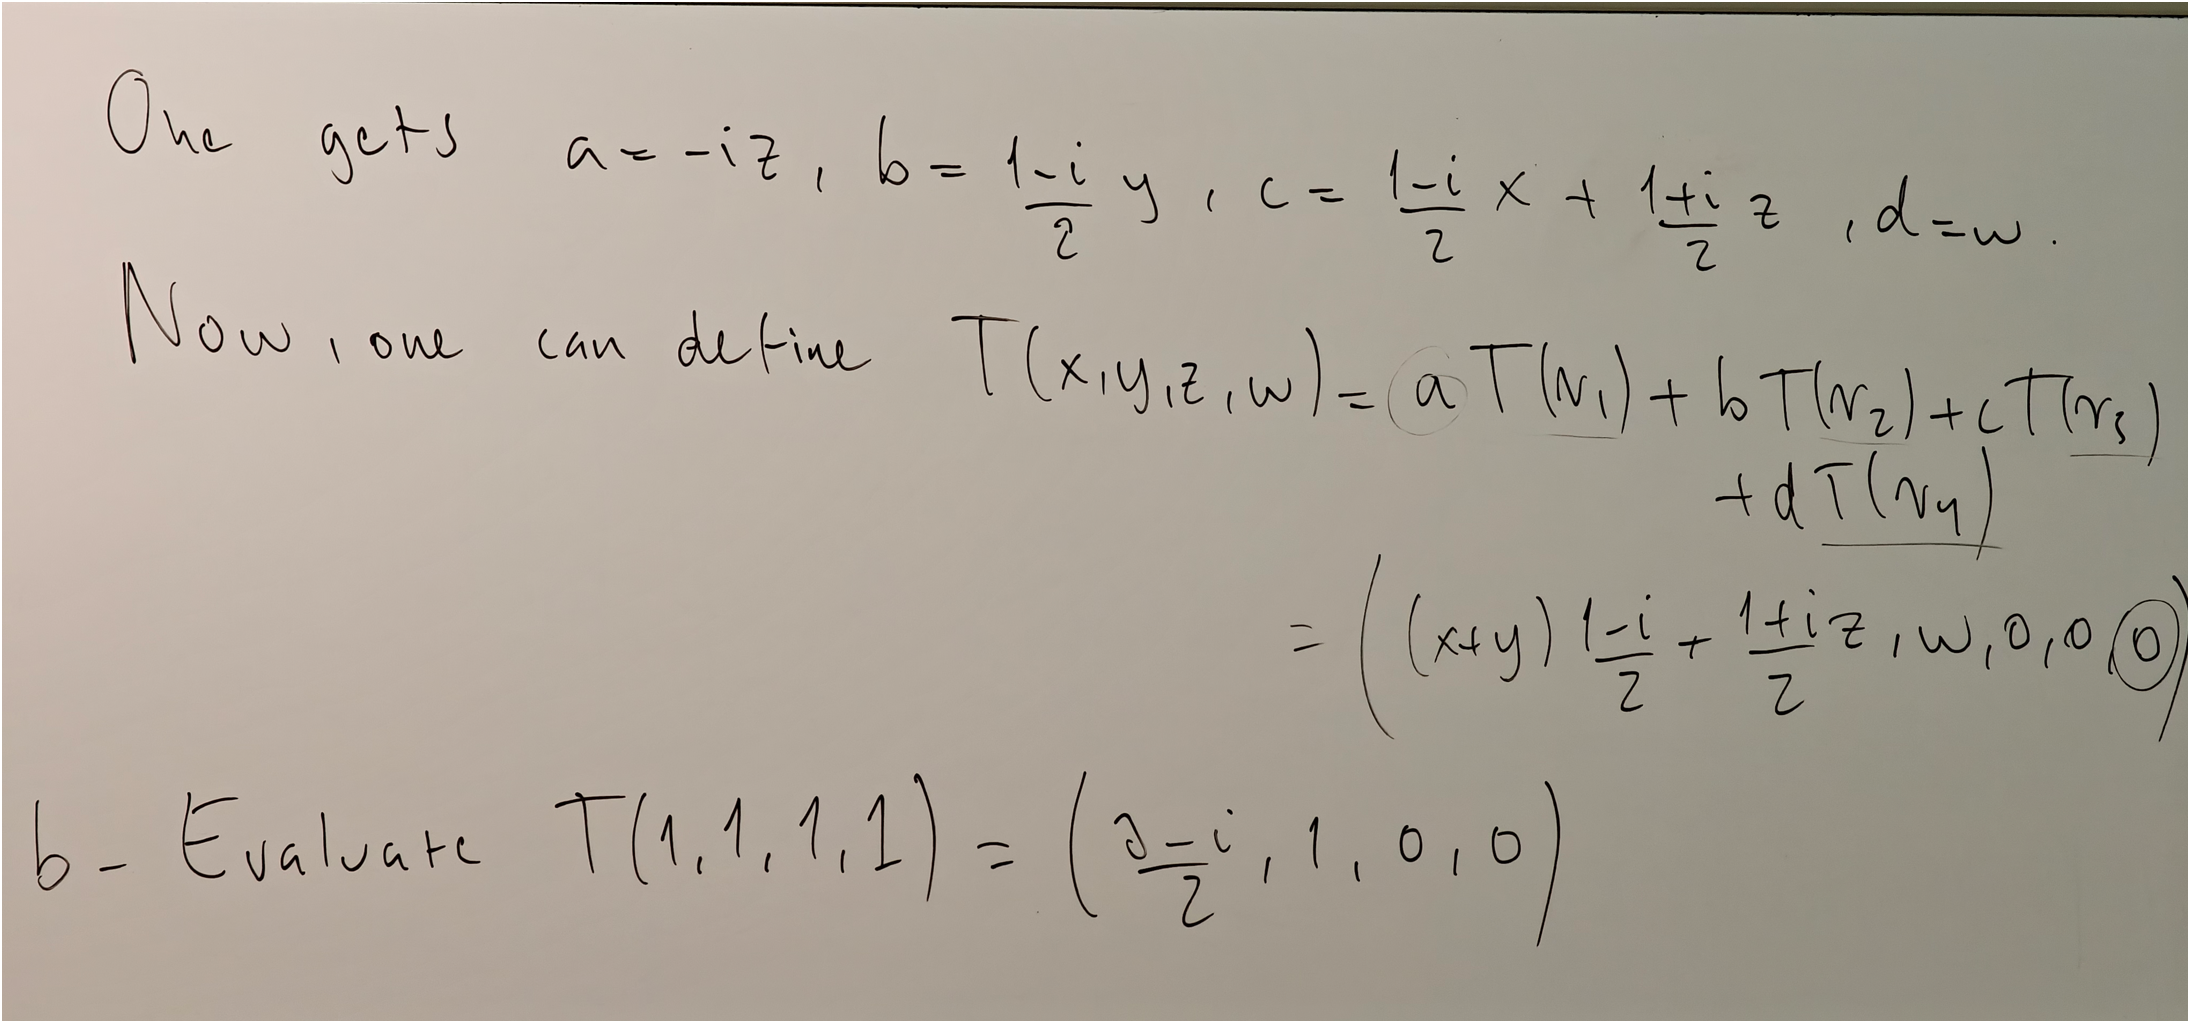 One gets a = -iz, b = \frac{1-i}{2} y, c = \frac{1-i}{2} x + \frac{1+i}{2} z, d = w.
Now, one can define T(x,y,z,w) = a T(v_1) + b T(v_2) + c T(v_3)
+ d T(v_4)
= ((x+y) \frac{1-i}{2} + \frac{1+i}{2} z, w, 0, 0, 0)
b - Evaluate T(1,1,1,1) = (\frac{3-i}{2}, 1, 0, 0)